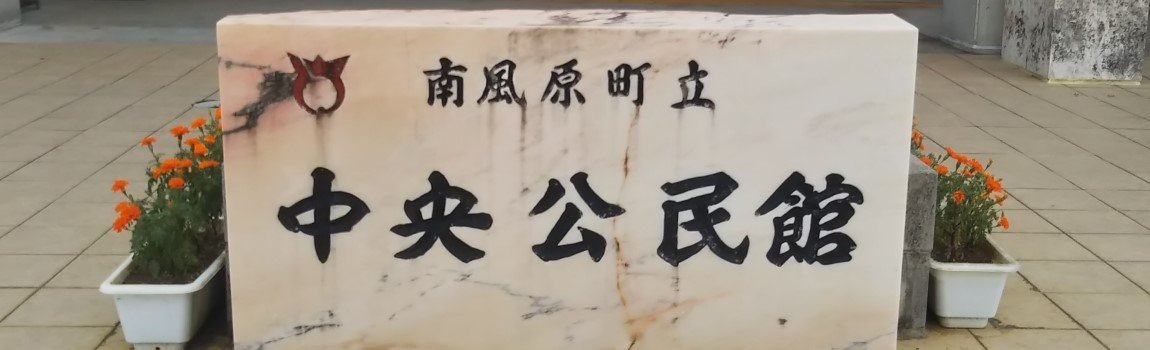 南風原町立
中央公民館